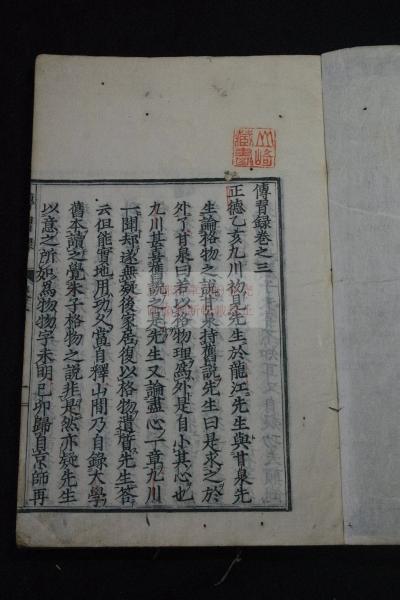 傳習錄卷之三
正德乙亥九川初見先生於龍江先生與甘泉先
生論格物之說甘泉持舊說先生曰是求之於
外了甘泉曰若以格物理爲外是自小其心也
九川甚喜舊說之是先生又論盡心一章九川
一聞却遂無疑後家居復以格物遺質先生答
云但能實地用功久當自釋山間乃自錄大學
舊本讀之覺朱子格物之說非是然亦疑先生
以意之所如爲物物字未明己卯歸自京師再
山崎
藏書